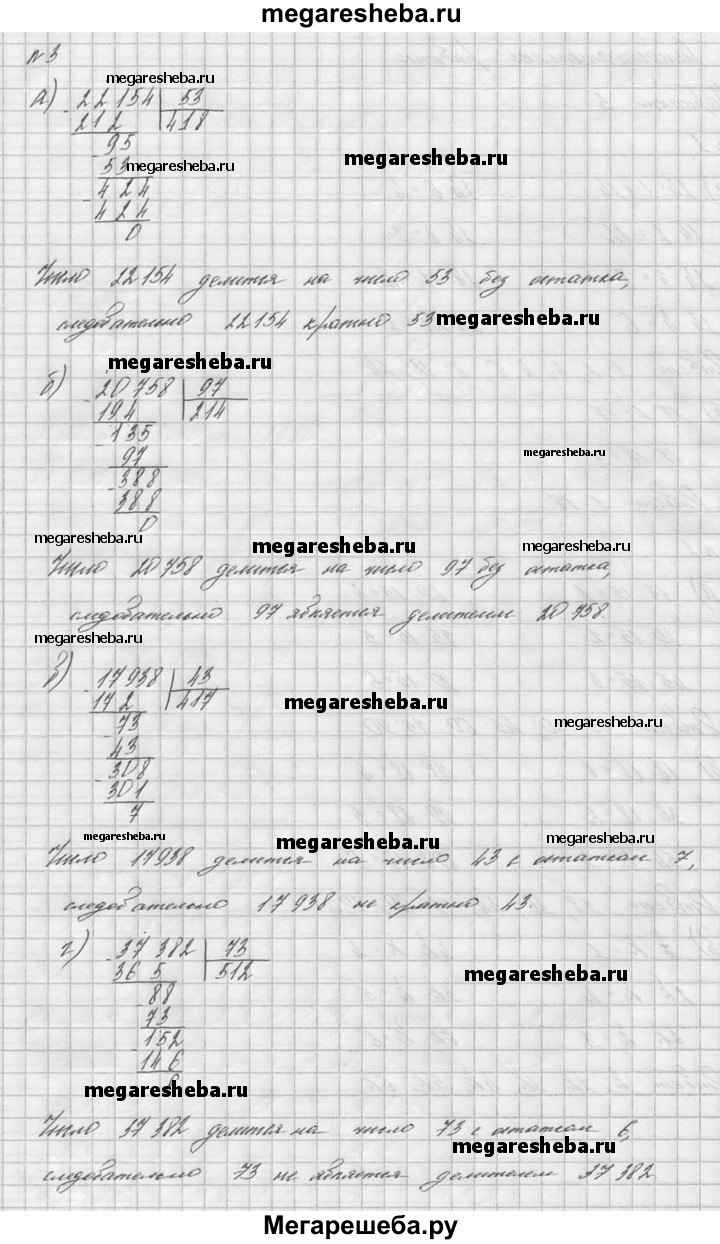 megaresheba.ru
№3
megaresheba.ru
а) 22154 53
212 418
95
53 megaresheba.ru
megaresheba.ru
424
424
0
Число 22154 делится на число 53 без остатка,
следовательно 22154 кратно 53
megaresheba.ru
megaresheba.ru
б) 20758 97
194 214
135
97
megaresheba.ru
388
388
0
megaresheba.ru megaresheba.ru megaresheba.ru
Число 20758 делится на число 97 без остатка,
следовательно 97 является делителем 20758.
megaresheba.ru
в) 17938 43
172 417
megaresheba.ru
73
megaresheba.ru
43
308
301
7
megaresheba.ru megaresheba.ru megaresheba.ru
Число 17938 делится на число 43 с остатком 7,
следовательно 17938 не кратно 43.
г) 37382 73
365 512
megaresheba.ru
88
73
152
146
6
megaresheba.ru
Число 37382 делится на число 73 с остатком 6,
megaresheba.ru
следовательно 73 не является делителем 37382
Мегарешеба.ру